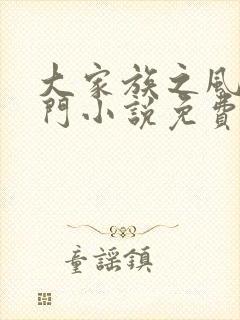 大家族之風
門小說免費
童謠鎮